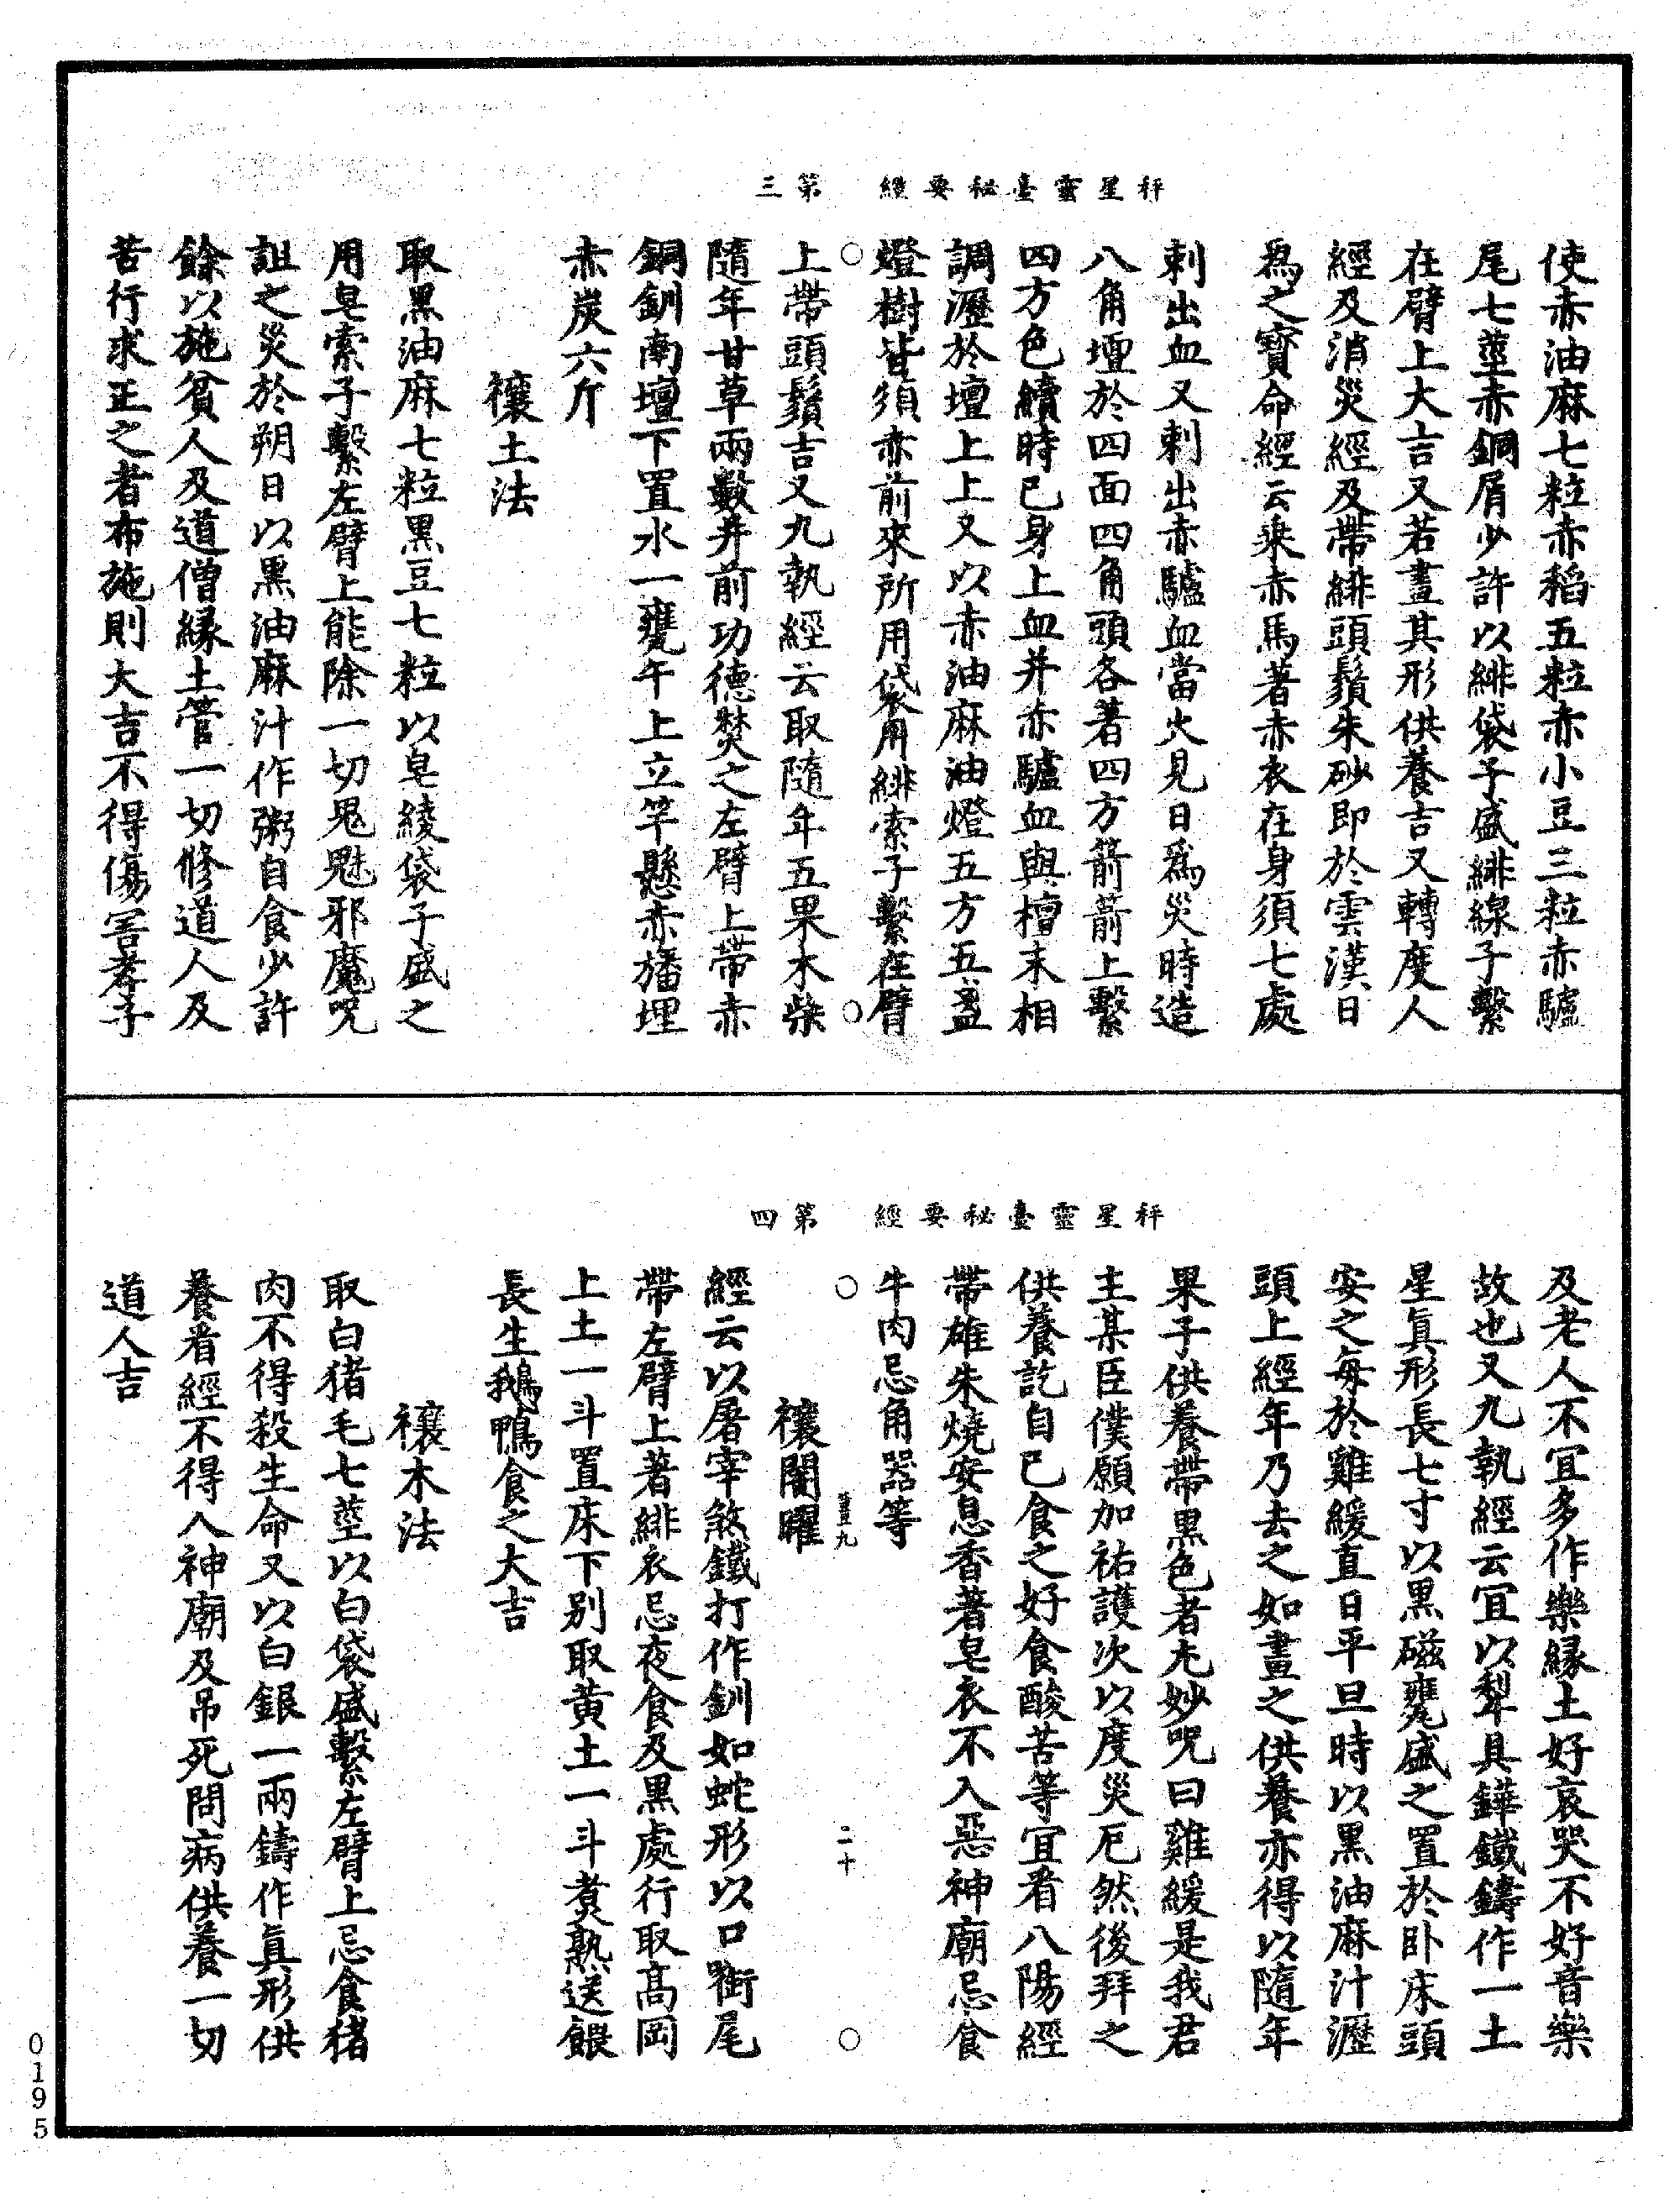 秤星靈臺秘要經 第三
使赤油麻七粒赤稻五粒赤小豆三粒赤驢
尾七莖赤銅屑少許以緋袋子盛緋線子繫
在臂上大吉又若畫其形供養吉又轉度人
經及消災經及帶緋頭鬚朱砂即於雲漢日
為之寶命經云乘赤馬著赤衣在身須七處
刺出血又刺出赤驢血當火見日為災時造
八角壇於四面四角頭各著四方箭箭上繫
四方色續時已身上血并赤驢血與檀末相
調瀝於壇上上又以赤油麻油燈五方五盞
燈樹皆須赤前來所用袋用緋索子繫在臂
上帶頭鬚吉又九執經云取隨年五果木柴
隨年甘草兩數并前功德焚之左臂上帶赤
銅釧南壇下置水一甕午上立竿懸赤旛埋
赤炭六斤
禳土法
取黑油麻七粒黑豆七粒以皂綾袋子盛之
用皂索子繫左臂上能除一切鬼魅邪魔咒
詛之災於朔日以黑油麻汁作粥自食少許
餘以施貧人及道僧緣土管一切修道人及
苦行求正之者布施則大吉不得傷害孝子
秤星靈臺秘要經 第四
及老人不宜多作樂緣土好哀哭不好音樂
故也又九執經云宜以犁具鏵鐵鑄作一土
星真形長七寸以黑磁甕盛之置於卧床頭
安之每於雞緩直日平旦時以黑油麻汁瀝
頭上經年乃去之如畫之供養亦得以隨年
果子供養帶黑色者尤妙咒曰雞緩是我君
主某臣僕願加祐護次以度災厄然後拜之
供養訖自已食之好食酸苦等宜看八陽經
帶雄朱燒安息香著皂衣不入惡神廟忌食
牛肉忌角器等
薑九 二十
禳闇曜
經云以屠宰煞鐵打作釧如蛇形以口銜尾
帶左臂上著緋衣忌夜食及黑處行取高岡
上土一斗置床下別取黃土一斗煮熟送餵
長生鵝鴨食之大吉
禳木法
取白猪毛七莖以白袋盛繫左臂上忌食猪
肉不得殺生命又以白銀一兩鑄作真形供
養看經不得入神廟及吊死問病供養一切
道人吉
0195